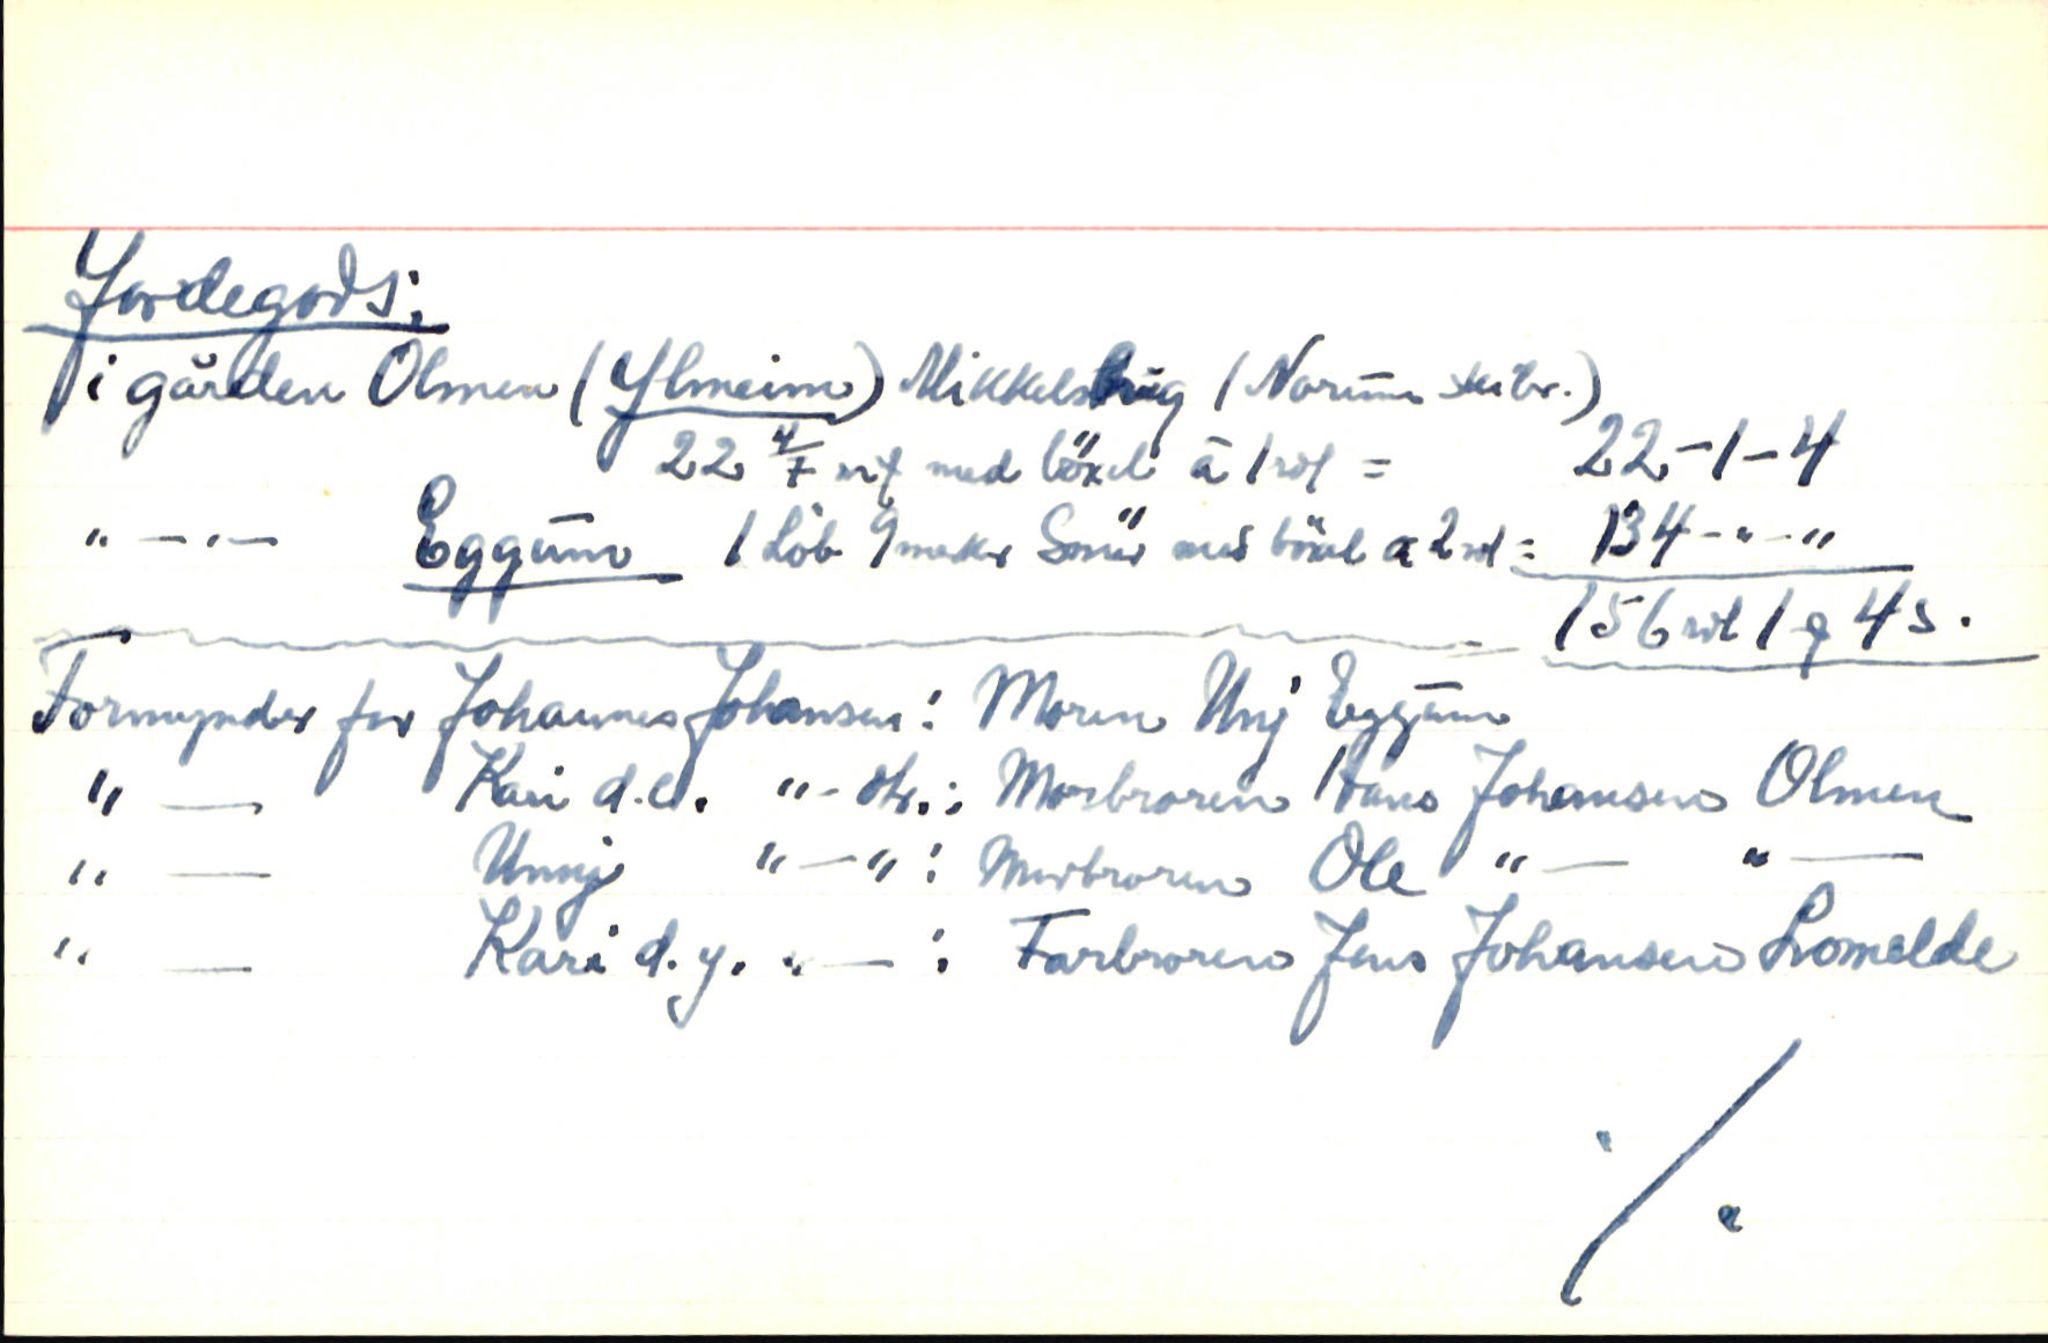 Jordegods:
i gården Olmen (Ylmeim) Mikkelsbrüg (Norum skibr.)
22 4/7 mf med böxel à 1 rdl = 22-1-4
"-"- Eggum 1 Löb 9 merker Smör med böxel a 2 rdl = 134-"-"
156 rdl 1 q 4 s.
Formynder for Johannes Johansen: Moren Unj Eggum
" — Kari d.e. "- dtr.: Morbroren Hans Johansen Olmen
" — Unnj "-": Morbroren Ole "— "—
" — Kari d.y. "—: Farbroren Jens Johansen Lomelde
./.